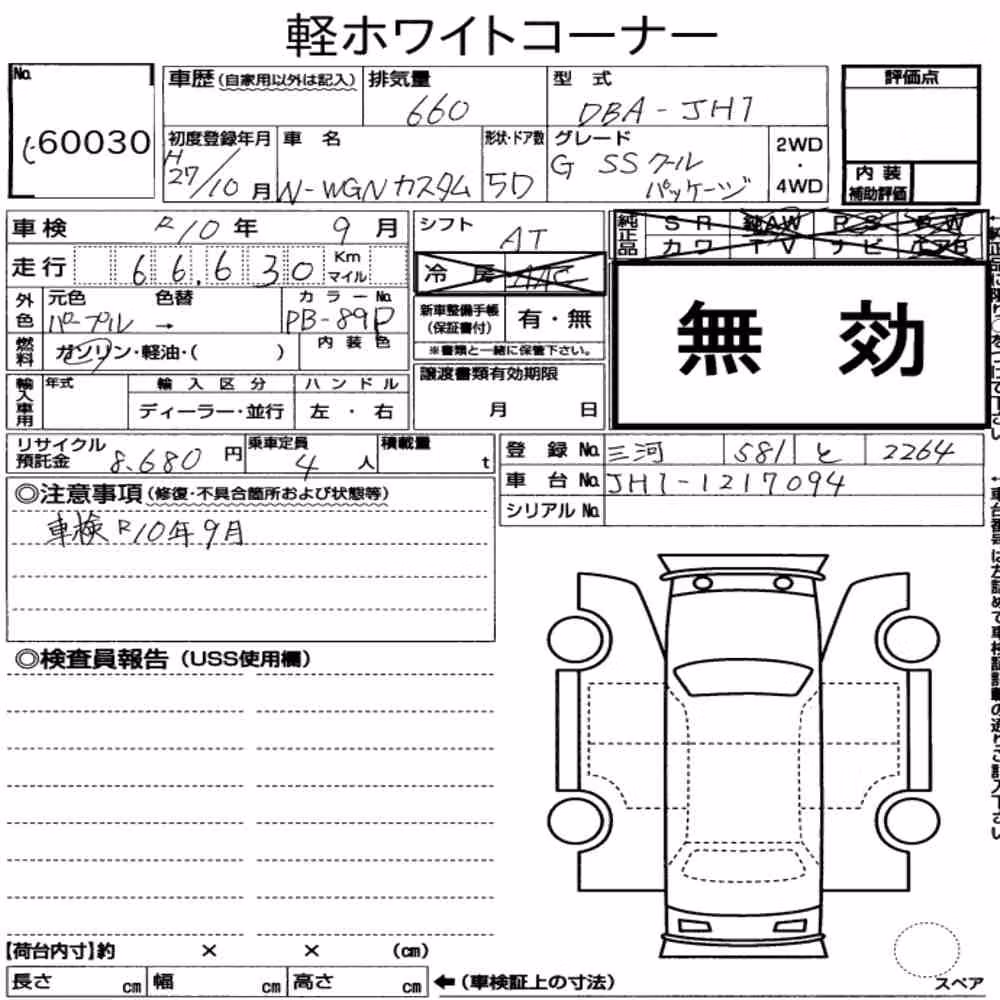 軽ホワイトコーナー
No.
60030
車歴(自家用以外は記入)
排気量
660
型式
DBA-JH1
評価点
初度登録年月
H27/10月
車名
N-WGNカスタム
形状・ドア数
5D
グレード
G SSクール
パッケージ
2WD
・
4WD
内装
補助評価
車検 R10年 9月
シフト
AT
純正品
SR 純AW PS PW
カワ TV ナビ エアB
走行 66,630 Km
マイル
冷房 AAC
無効
外色
元色 色替
パープル →
カラーNo.
PB-89P
新車整備手帳
(保証書付)
有・無
※書類と一緒に保管下さい。
燃料
ガソリン・軽油・( )
内装色
輸入車用
年式
輸入区分
ディーラー・並行
ハンドル
左・右
譲渡書類有効期限
月 日
リサイクル
預託金
8,680円
乗車定員
4人
積載量
t
登録No. 三河 581 と 2264
車台No. JH1-1217094
シリアルNo.
◎注意事項(修復・不具合箇所および状態等)
車検R10年9月
◎検査員報告(USS使用欄)
【荷台内寸】約 × × (cm)
長さ cm 幅 cm 高さ cm
←(車検証上の寸法)
スペア